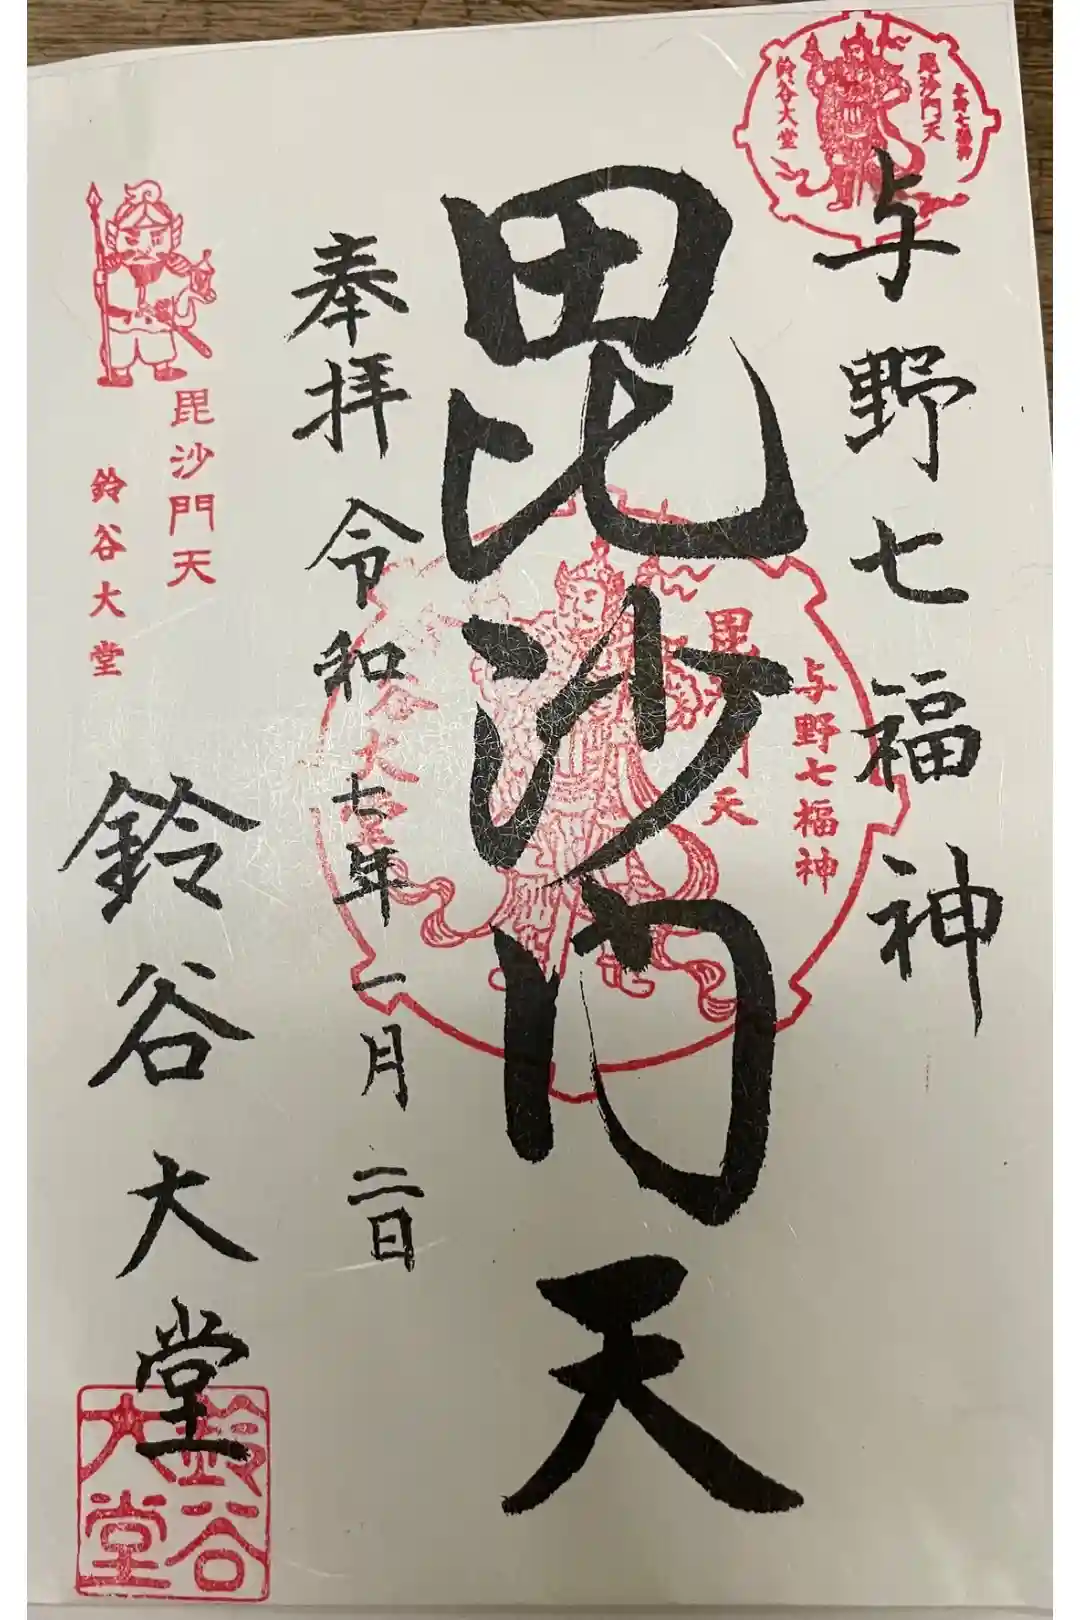 与野七福神
毘沙門天
鈴谷大堂
与野七福神
毘沙門天
与野七福神
毘 天
谷大
奉拝 令和七年 一月 二日
鈴谷大堂
毘沙門天
鈴谷大堂
鈴谷
大堂